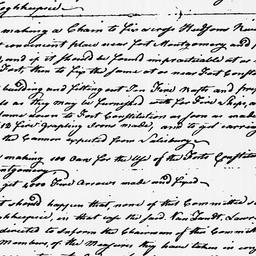 making a Chain to fix across Hudsons River
convenient place near Fort Montgomery and
and if it should be found impracticable at or
Fort, then to fix the same at or near Fort Constit
building and fitting out Ten Fire Rafts and prop
as they may be furnished with for Fire Ships, and
same down to Fort Constitution as soon as made
12 five Grapling Irons made, and to get carri
the Cannon expected from Salisbury
making 100 Oars for the Use of the Forts Constitut
ontgomery
get 4000 Fire Arrows made and
should happen that none of this Committee s
ghkeepsie, in that case the said Van Zandt, Lawr
directed to inform the Chairman of the Committ
Members of the Measures they have taken in con